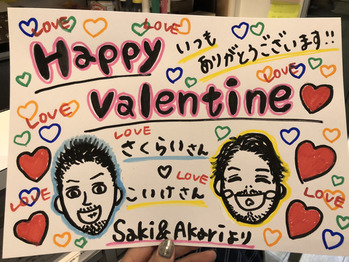 LOVE LOVE
Happy
いつも
ありがとうございます!!
LOVE
LOVE
Valentine
LOVE
さくらいさん
LOVE
こいけさん
LOVE
LOVE
Saki & Akariより